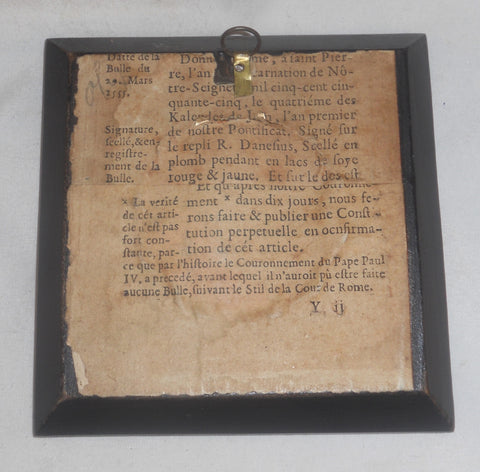 Datte de la
Bulle du
29. Mars
1555.
Signature,
scellé, & en-
registre-
ment de la
Bulle.
* La verité
de cét arti-
cle n'est pas
fort con-
stante, par-
Donn me, à saint Pier-
re, l'an carnation de Nô-
tre-Seigne mil cinq-cent cin-
quante-cinq, le quatriéme des
Kalendes de l'an premier
de nostre Pontificat. Signé sur
le repli R. Danesius, Scellé en
plomb pendant en lacs de soye
rouge & jaune. Et sur le dos est
Et qu'aprés nôtre Couronne-
ment * dans dix jours, nous fe-
rons faire & publier une Const
tution perpetuelle en ocnfirma-
tion de cét article.
ce que par l'histoire le Couronnement du Pape Paul
IV. a precedé, avant lequel il n'auroit pû estre faite
aucune Bulle, suivant le Stil de la Cour de Rome.
Y ij